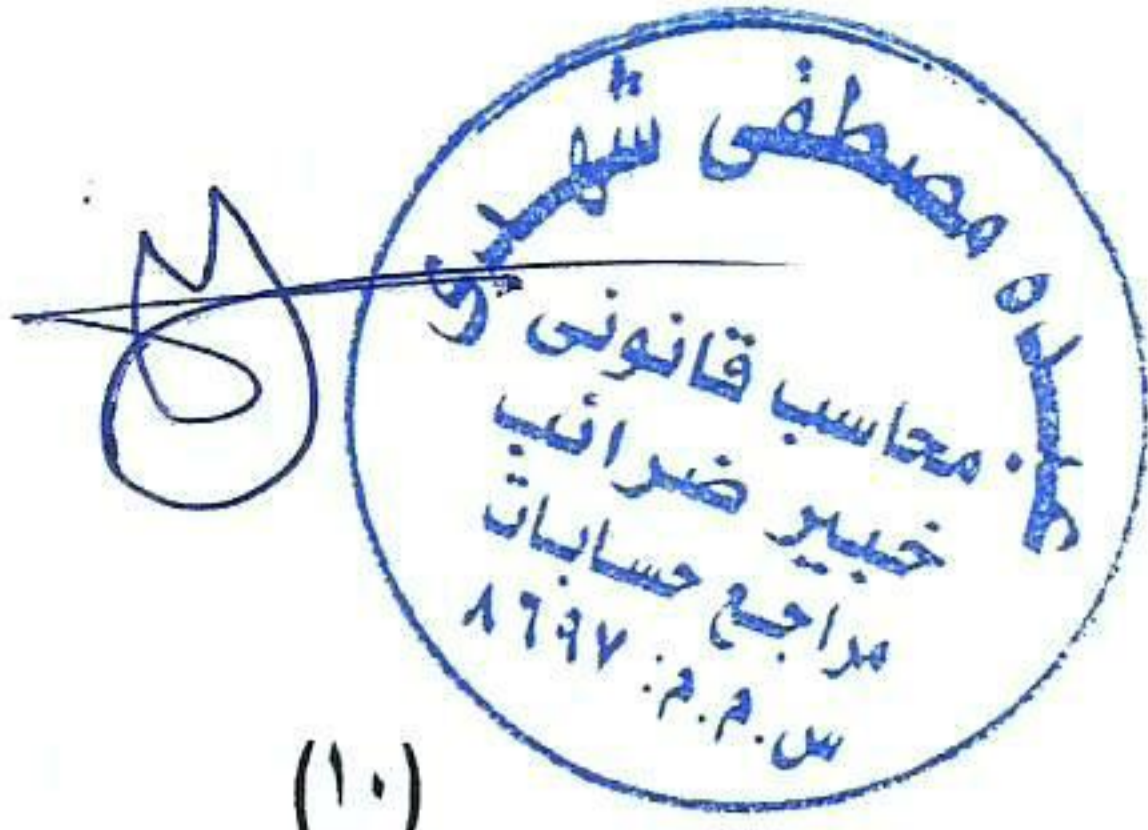 عبده مصطفى شهدى
محاسب قانونى
خبير ضرائب
مراجع حسابات
س.م.م: ٨٦٩٧
(١٠)